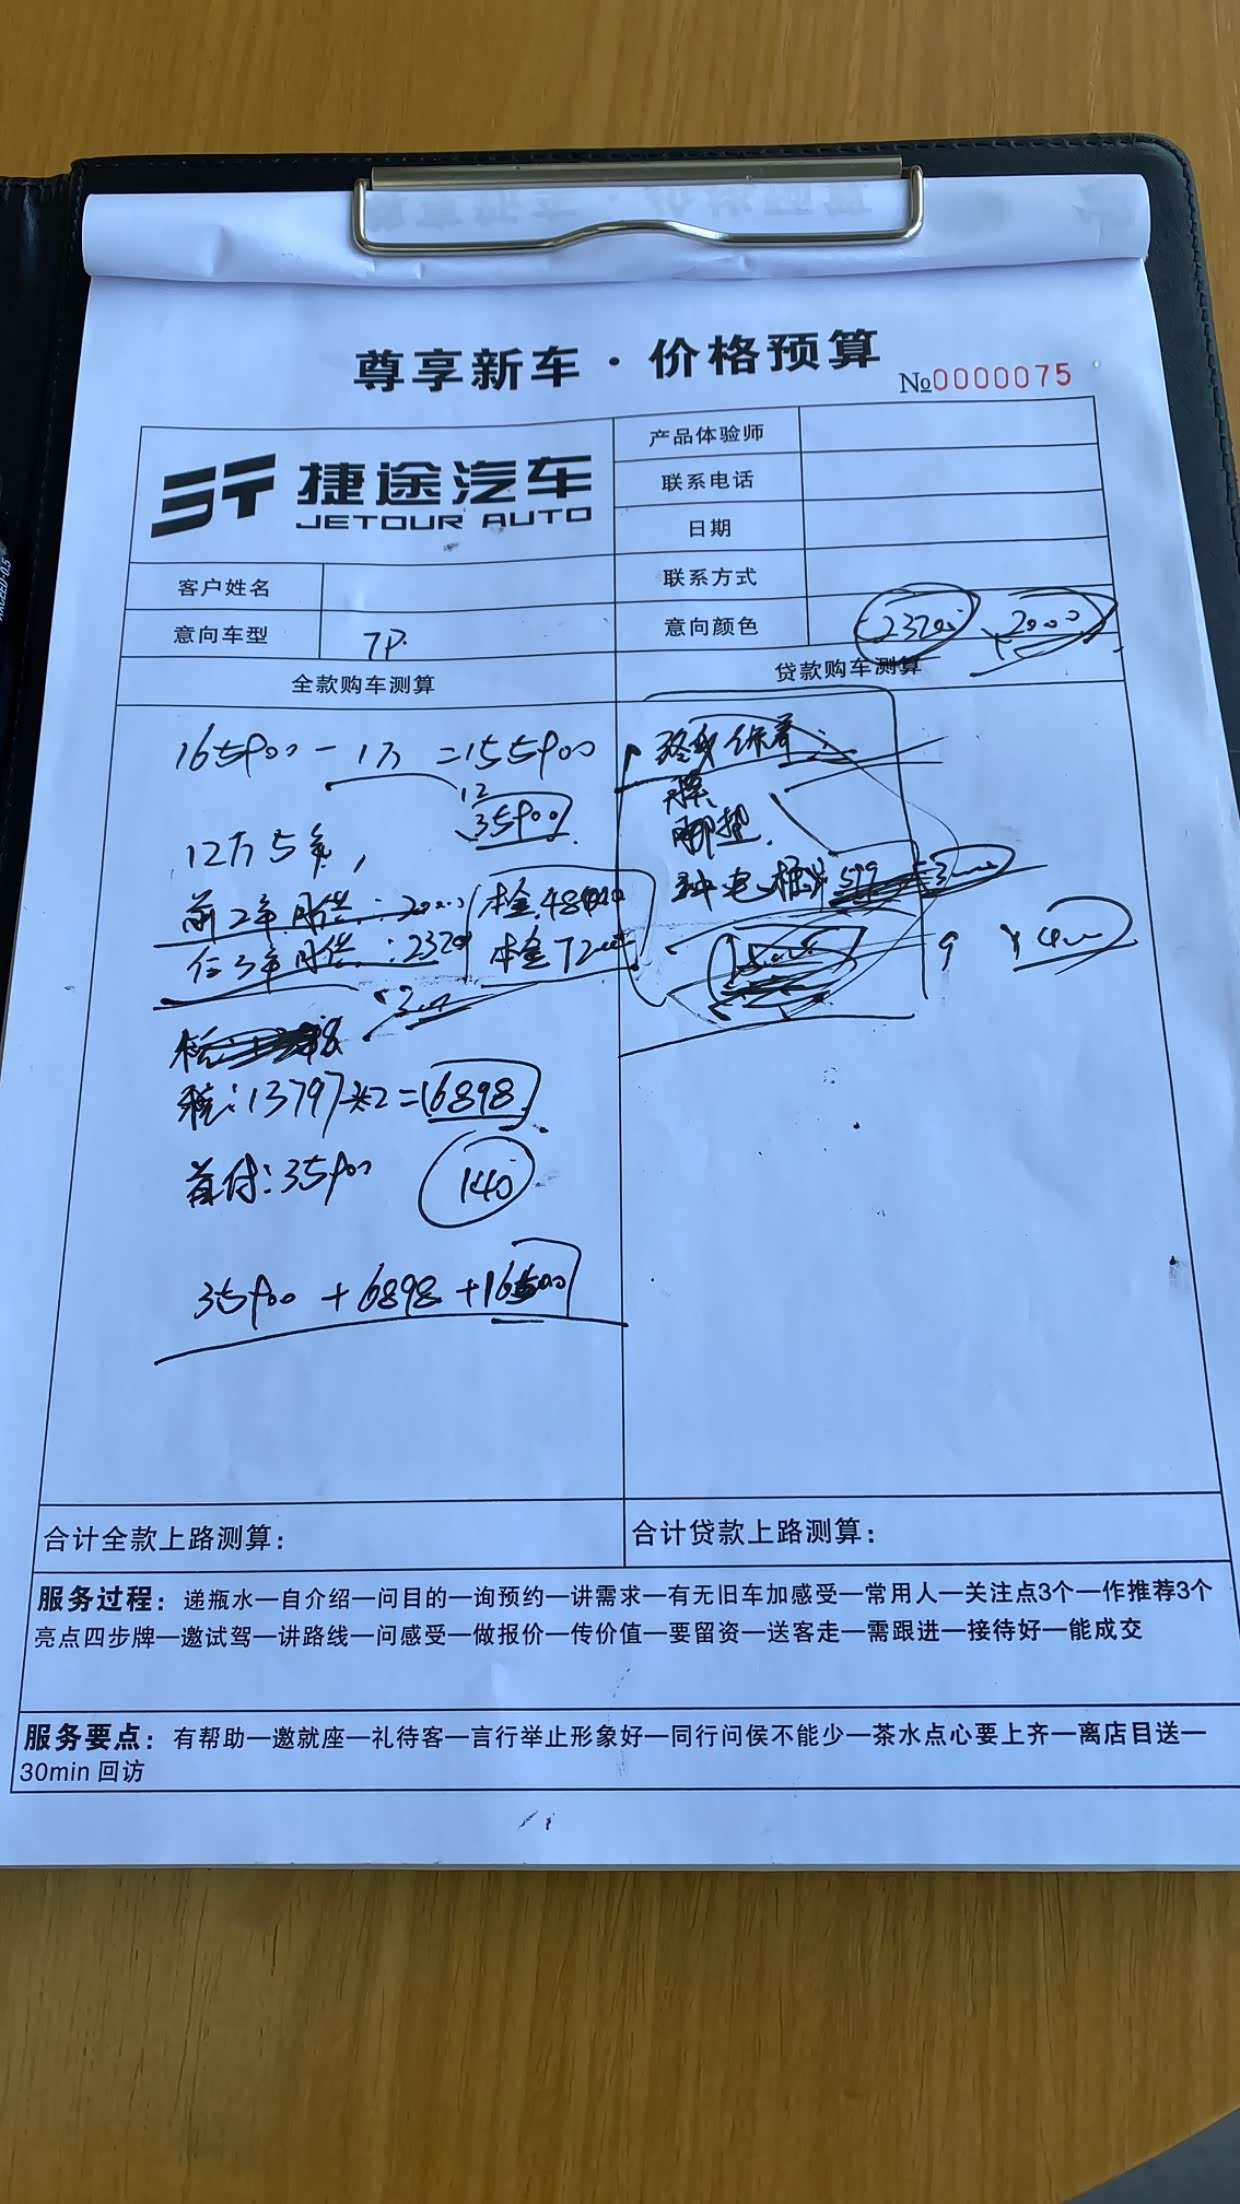 尊享新车·价格预算
№0000075
捷途汽车
JETOUR AUTO
产品体验师
联系电话
日期
客户姓名
联系方式
意向车型 7P.
意向颜色 2320 2000
全款购车测算
贷款购车测算
165900-1万=155900
12
35900
12万5年,
前2年月供:2000 本金48000
后3年月供:2320 本金72000
终身保养
膜
脚垫
税:13797 ÷2=6898
首付:35900
140
35900+6898+16500
合计全款上路测算:
合计贷款上路测算:
服务过程:递瓶水—自介绍—问目的—询预约—讲需求—有无旧车加感受—常用人—关注点3个—作推荐3个
亮点四步牌—邀试驾—讲路线—问感受—做报价—传价值—要留资—送客走—需跟进—接待好—能成交
服务要点:有帮助—邀就座—礼待客—言行举止形象好—同行问侯不能少—茶水点心要上齐—离店目送—
30min回访